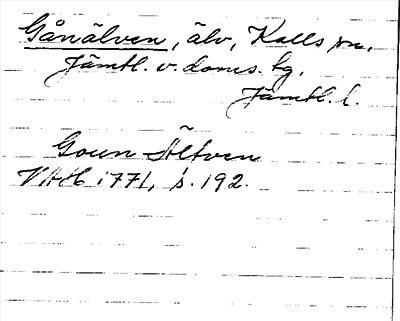 Gånälven, älv, Kalls sn.
Jämtl. v. doms. tg.
Jämtl. l.
Goun-Älfven
VAH 1771, s. 192.